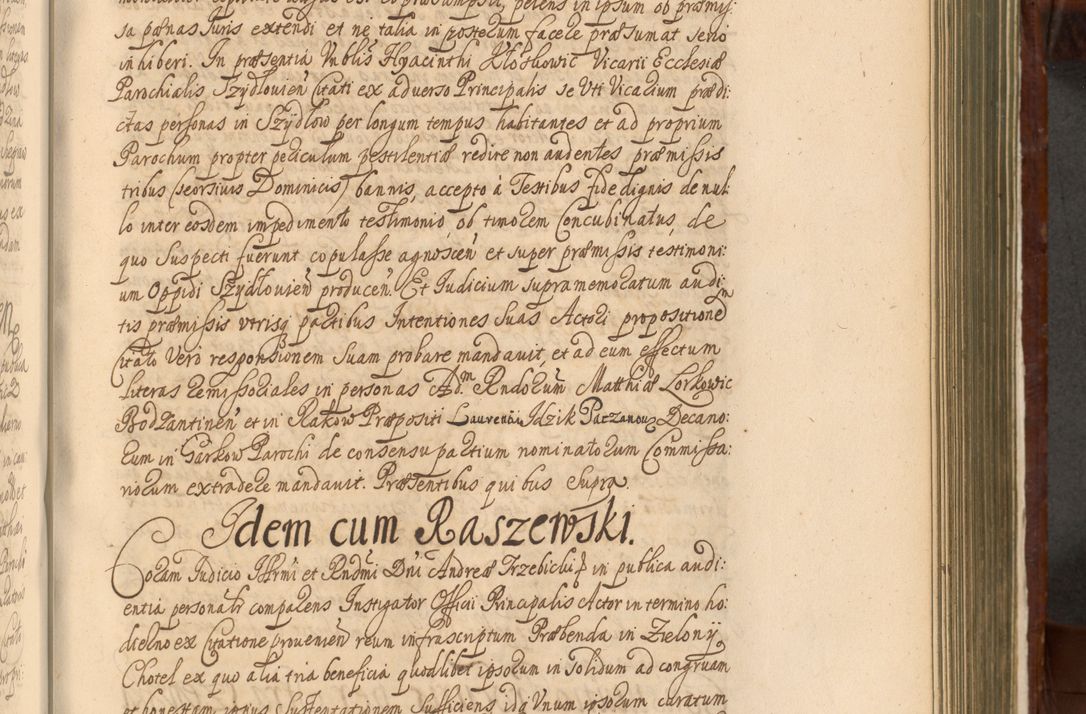 sa pœnas Juris extendi et ne talia in posterum facere præsumat serio
inhiberi. In præsentia Vnblis Hyacinthi Kłoskowic Vicarii Ecclesiæ
Parochialis Szydlovien Citati ex adverso Principalis se Vti Vicarium prædi:
ctas personas in Szydlow per longum tempus habitantes et ad proprium
Parochum propter periculum pestilentiæ redire non audentes præmissis
tribus (seorsivis Dominicis) bannis, accepto á Testibus fide dignis de nul:
lo inter eosdem impedimento testimonio, ob timorem Concubinatus, de
quo Suspecti fuerunt copulasse agnoscen et super præmissis testimoni:
um Oppidi Szydlovien producen. Et Judicium supramemoratum audi:
tis præmissis verisq partibus Intentiones Suas Actori propositione
Citato Vero responsionem Suam probare mandavit, et ad eum effectum
literas remissoriales in personas Adm Rndorum Matthiæ Lorkowic
Bodzantinen et in Rakow Præpositi Laurentii Idzik Paczanov Decano:
rum in Garkow Parochi de consensu partium nominatorum Commissa:
riorum extradere mandavit. Præsentibus quibus Supra.
Idem cum Raszewski.
Coram Judicio Illrmi et Rndmi Dni Andreæ Trzebicki in publica audi:
entia personalr comparens Instigator Officii Principalis Actor in termino ho:
dierno ex Citatione provenien reum infrascriptum Præbenda in Zielony
Chotel ex quo alia tria beneficia quodlibet ipsorum in solidum ad congruam
et honestam Sustentationem Sufficiens id Vnum ipsorum curatum